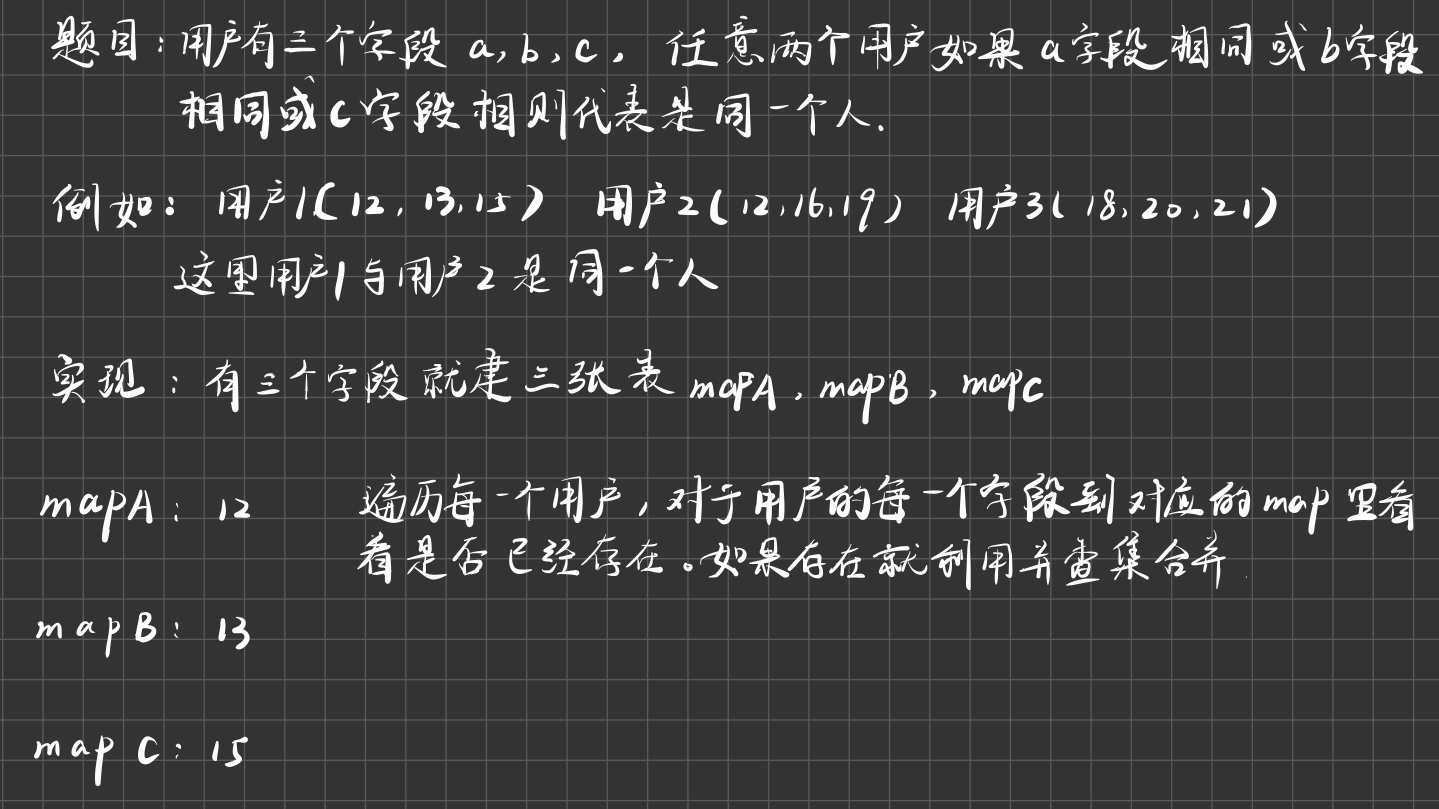 题目:用户有三个字段 a,b,c, 任意两个用户如果 a字段相同或b字段
相同或c字段相则代表是同一个人.
例如: 用户1(12,13,15) 用户2(12,16,19) 用户3(18,20,21)
这里用户1与用户2是同一个人
实现:有三个字段就建三张表 mapA,mapB,mapC
mapA: 12 遍历每一个用户,对于用户的每一个字段到对应的map里看
看是否已经存在。如果存在就利用并查集合并
mapB: 13
mapC: 15